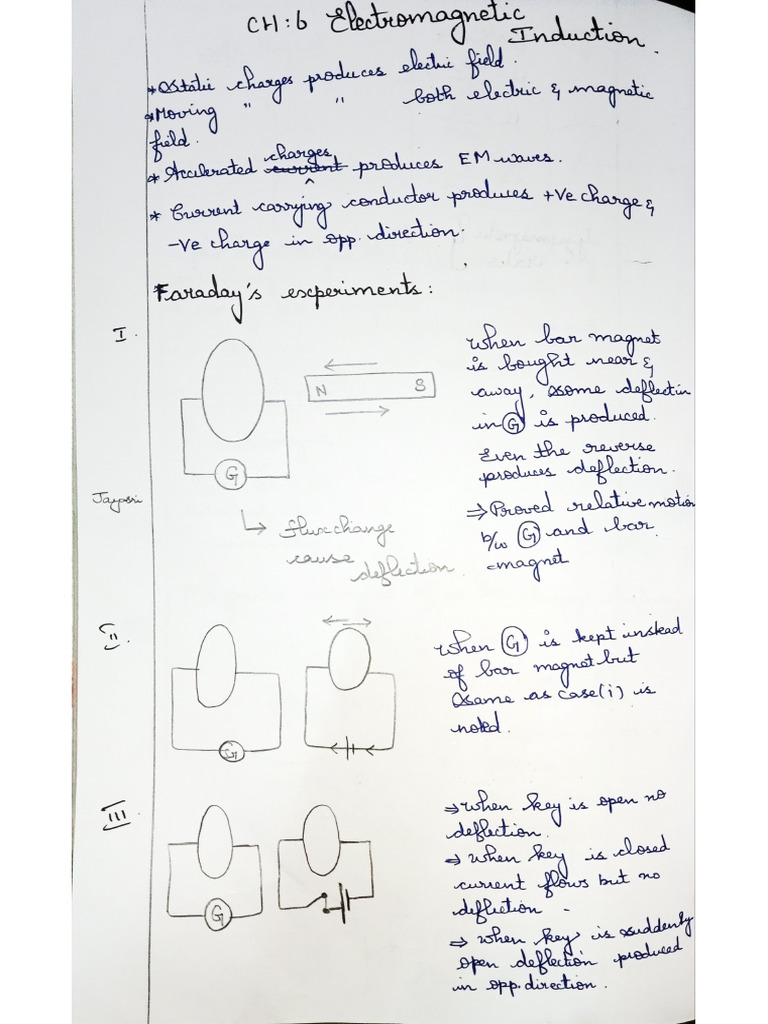 CH:6 Electromagnetic
Induction.
* Static charges produces electric field.
* Moving " " both electric & magnetic
field.
* Accelerated charges produces EM waves.
* Current carrying conductor produces +ve charge &
-ve charge in opp. direction.
Faraday's experiments:
I.
N S
G
When bar magnet
is bought near &
away, some deflectin
in G is produced.
Even the reverse
produces deflection.
⇒ Proved relative motion
b/w G and bar
magnet
Jayasri
↳ flux change
cause
deflection.
II.
G
When G is kept instead
of bar magnet but
same as case(i) is
noted.
III
G
⇒ When key is open no
deflection.
⇒ When key is closed
current flows but no
deflection.
⇒ When key is suddenly
open deflection produced
in opp. direction.